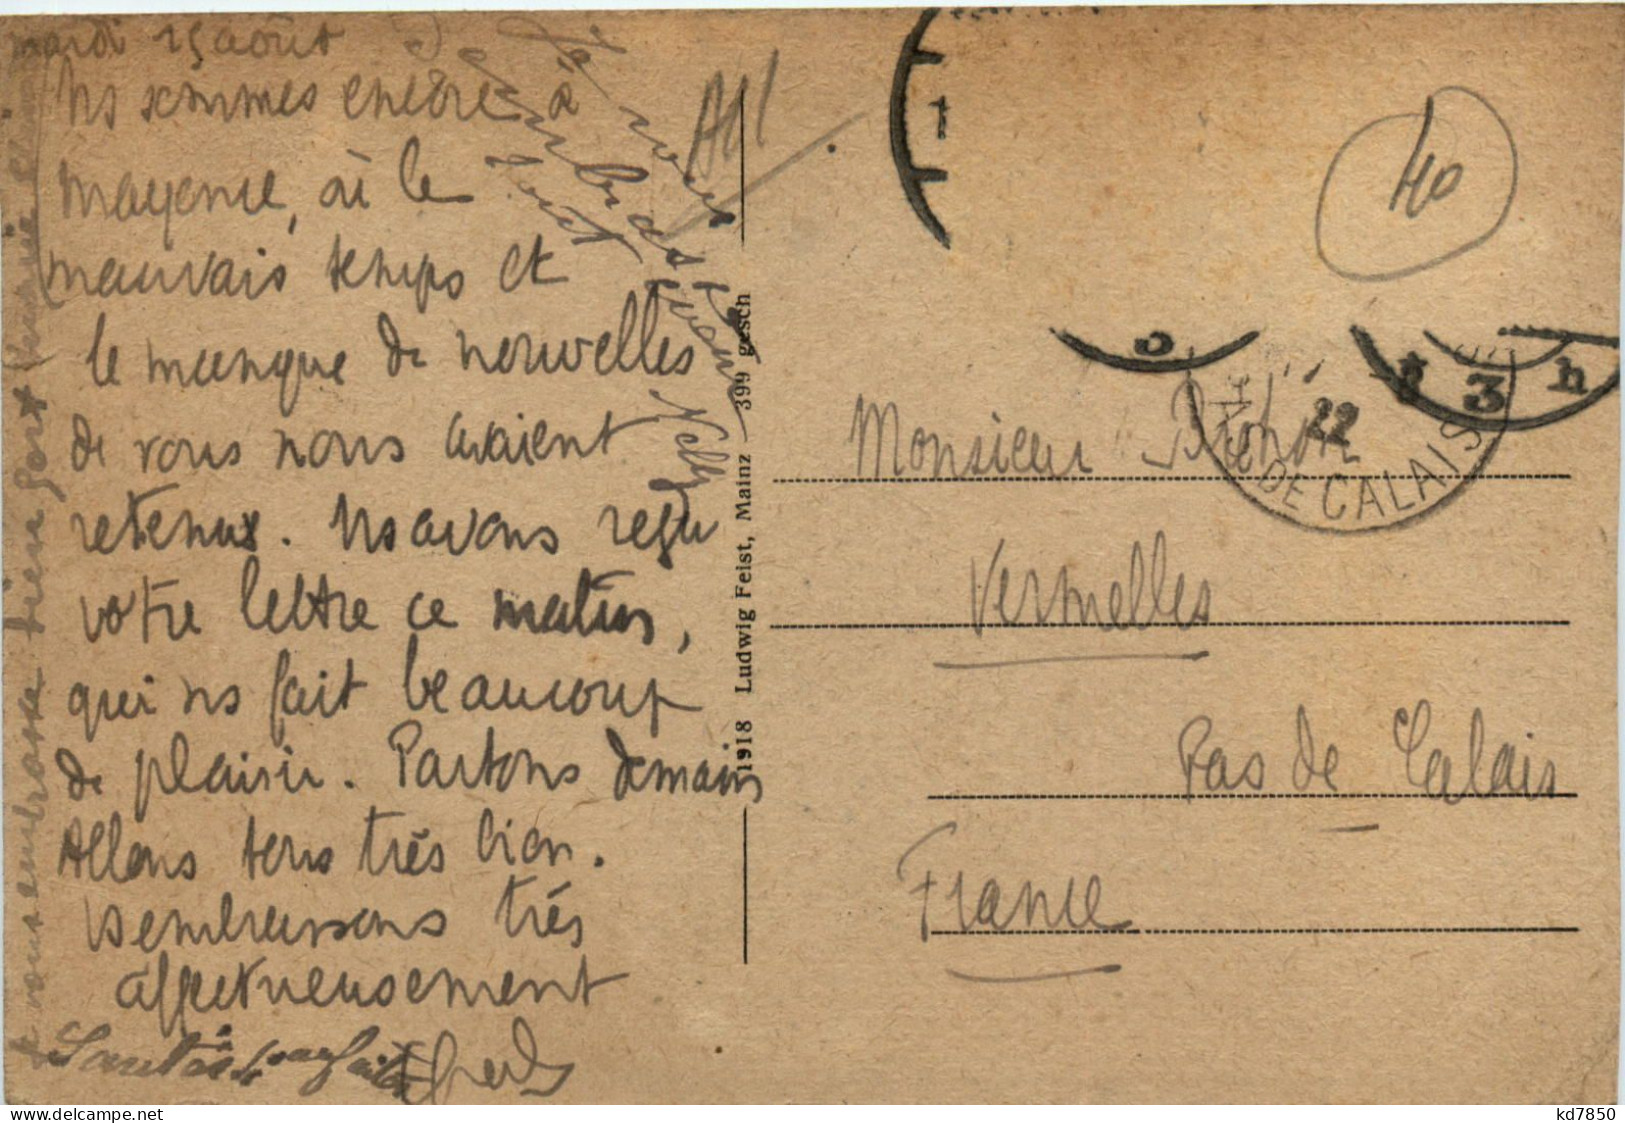 mardi 15 août
Ns sommes encore à
Mayence, où le
mauvais temps et
le manque de nouvelles
de vous nous avaient
retenus. Ns avons reçu
votre lettre ce matin,
qui ns fait beaucoup
de plaisir. Partons demain
Allons tous très bien.
Vs embrassons très
affectueusement
Santés parfaites
Je vous embrasse bien fort
Je vous
embrasse
tout
Nelly
1918 Ludwig Feist, Mainz 399 gesch
40
22
3
h
PAS DE CALAIS
Monsieur
Vermelles
Pas de Calais
France
delcampe.net
kd7850